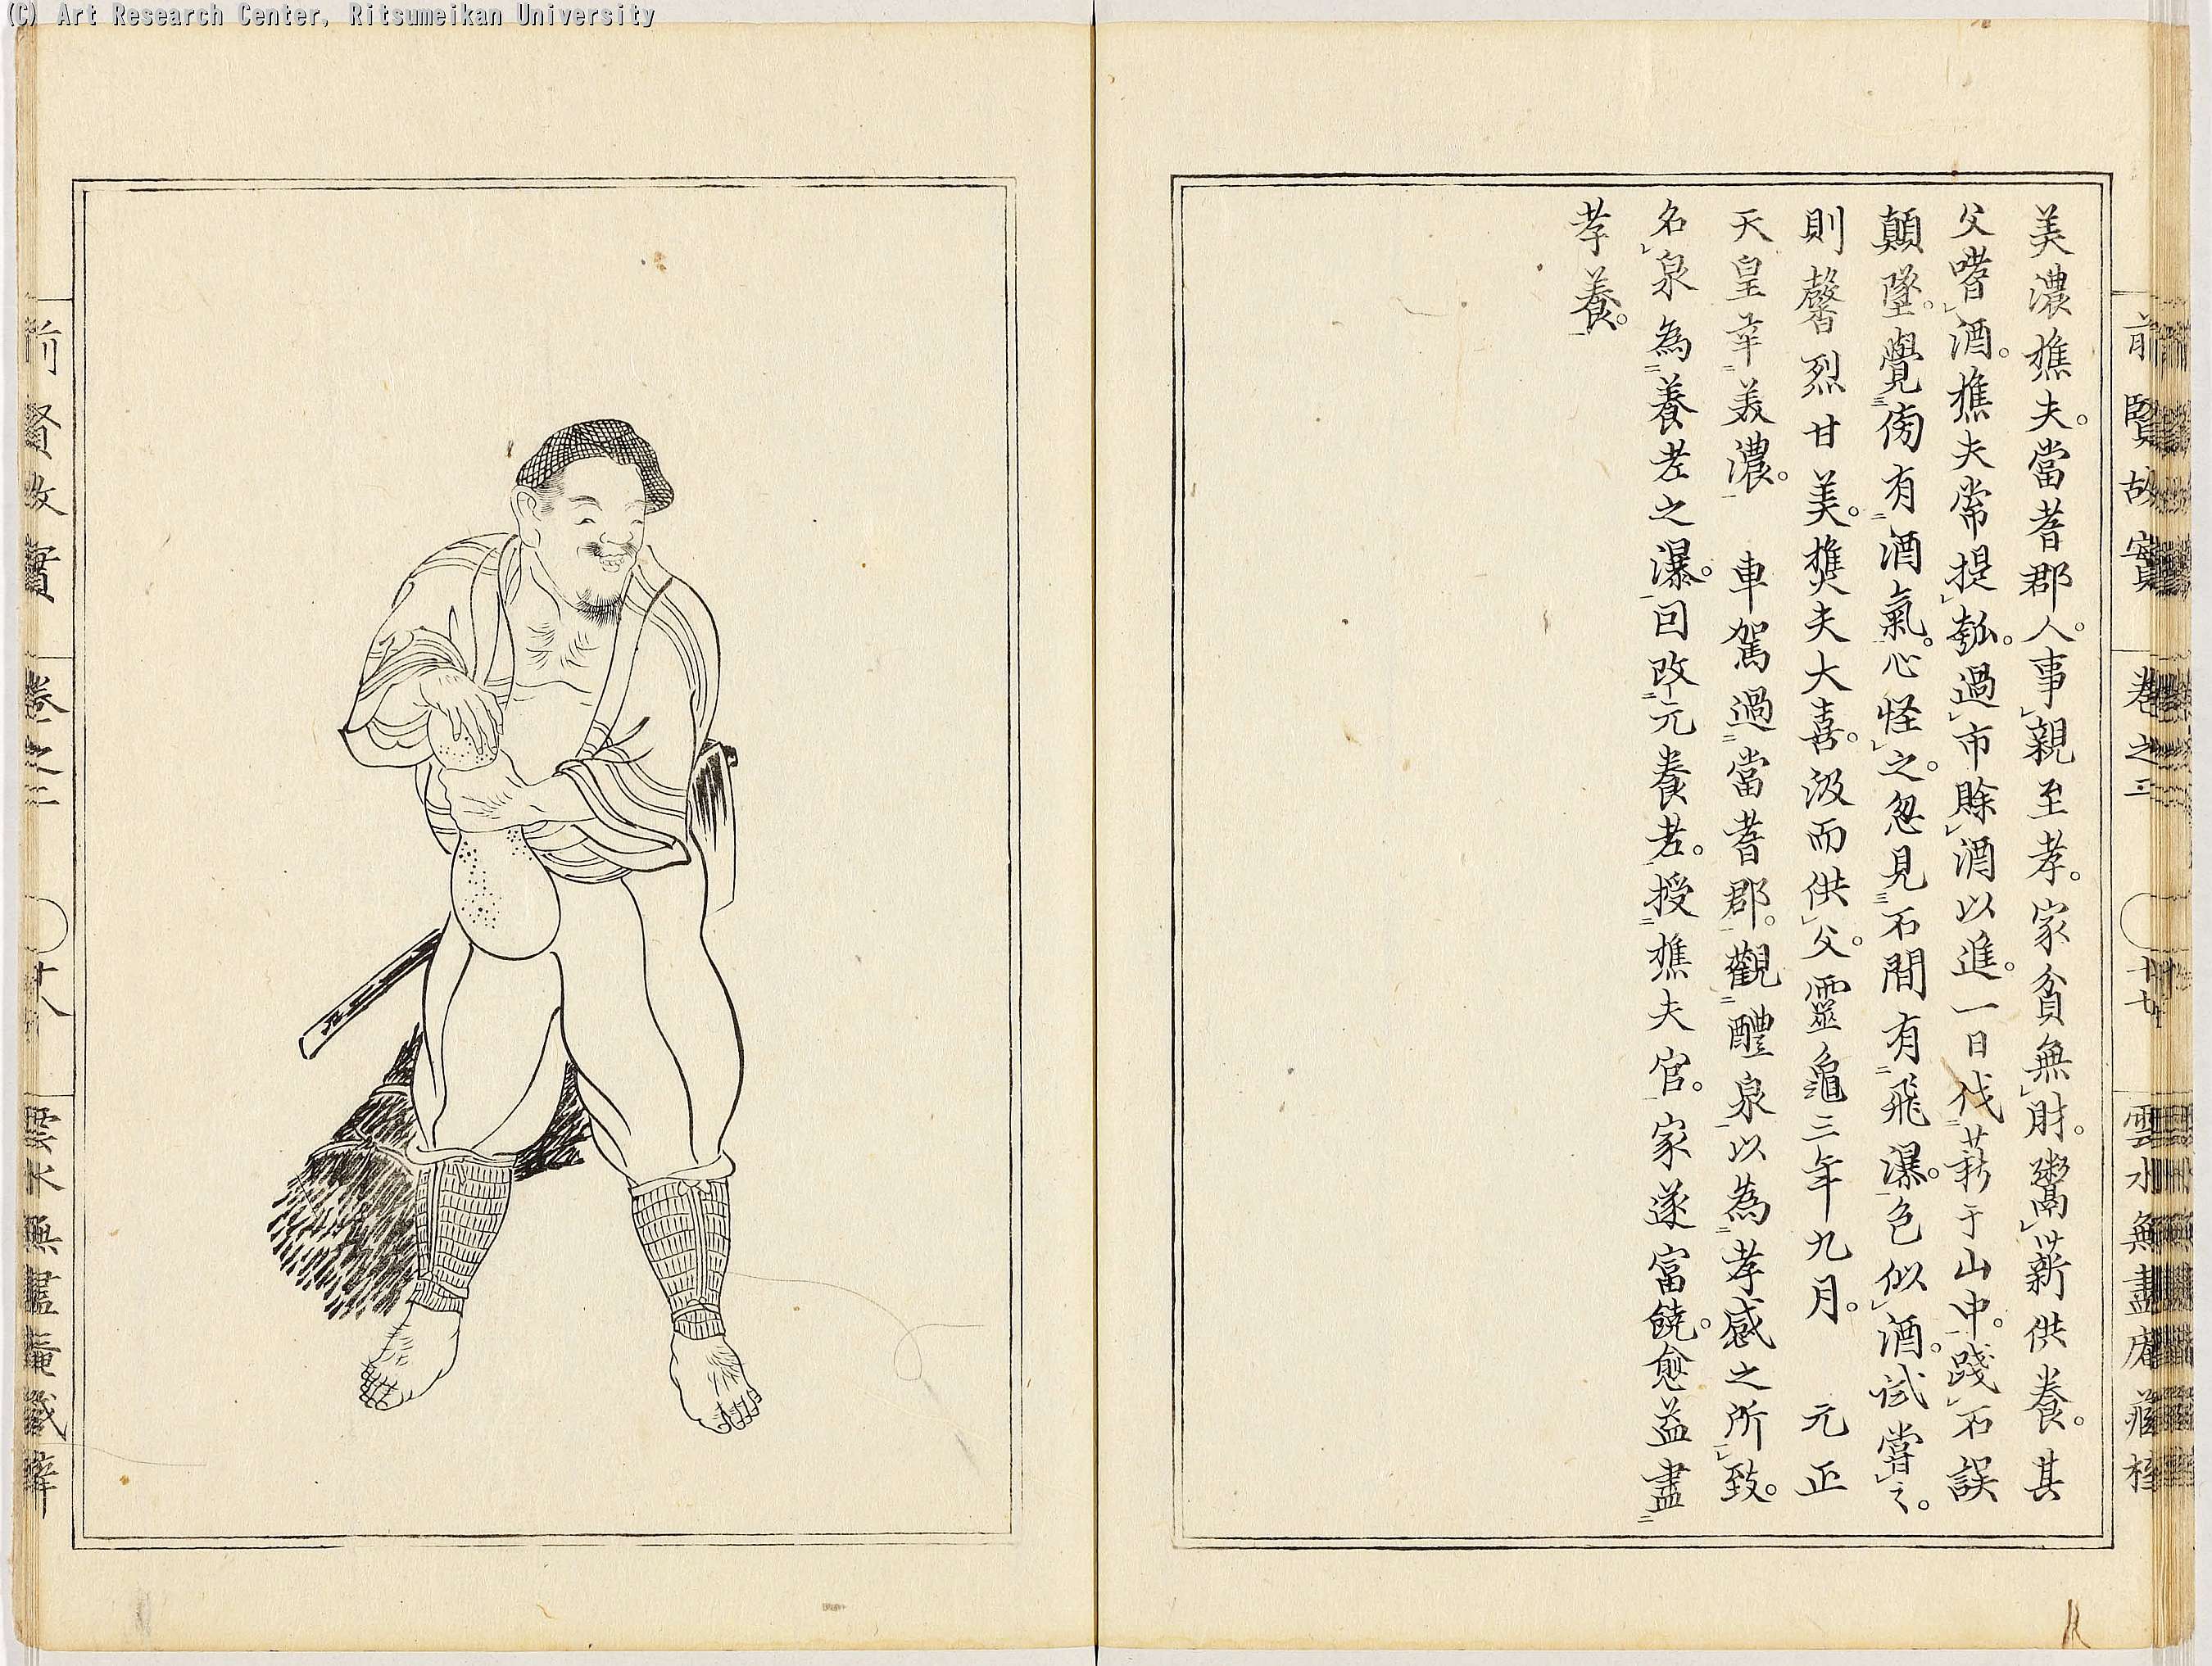 (C) Art Research Center, Ritsumeikan University
前賢故實 卷之三 十七 雲水無盡庵藏梓
美濃樵夫。當耆郡人。事親至孝。家貧無財。鬻薪供養。其
父嗜酒。樵夫常提瓠。過市賖酒以進。一日伐薪于山中。踐石誤
顛墜。覺傍有酒氣。心怪之。忽見石間有飛瀑。色似酒。試嘗之。
則馨烈甘美。樵夫大喜。汲而供父。靈龜三年九月。 元正
天皇幸美濃。 車駕過當耆郡。觀醴泉以為孝感之所致。
名泉為養老之瀑。回改元養老。授樵夫官。家遂富饒。愈益盡
孝養。
前賢故實 卷之三 十八 雲水無盡庵藏梓